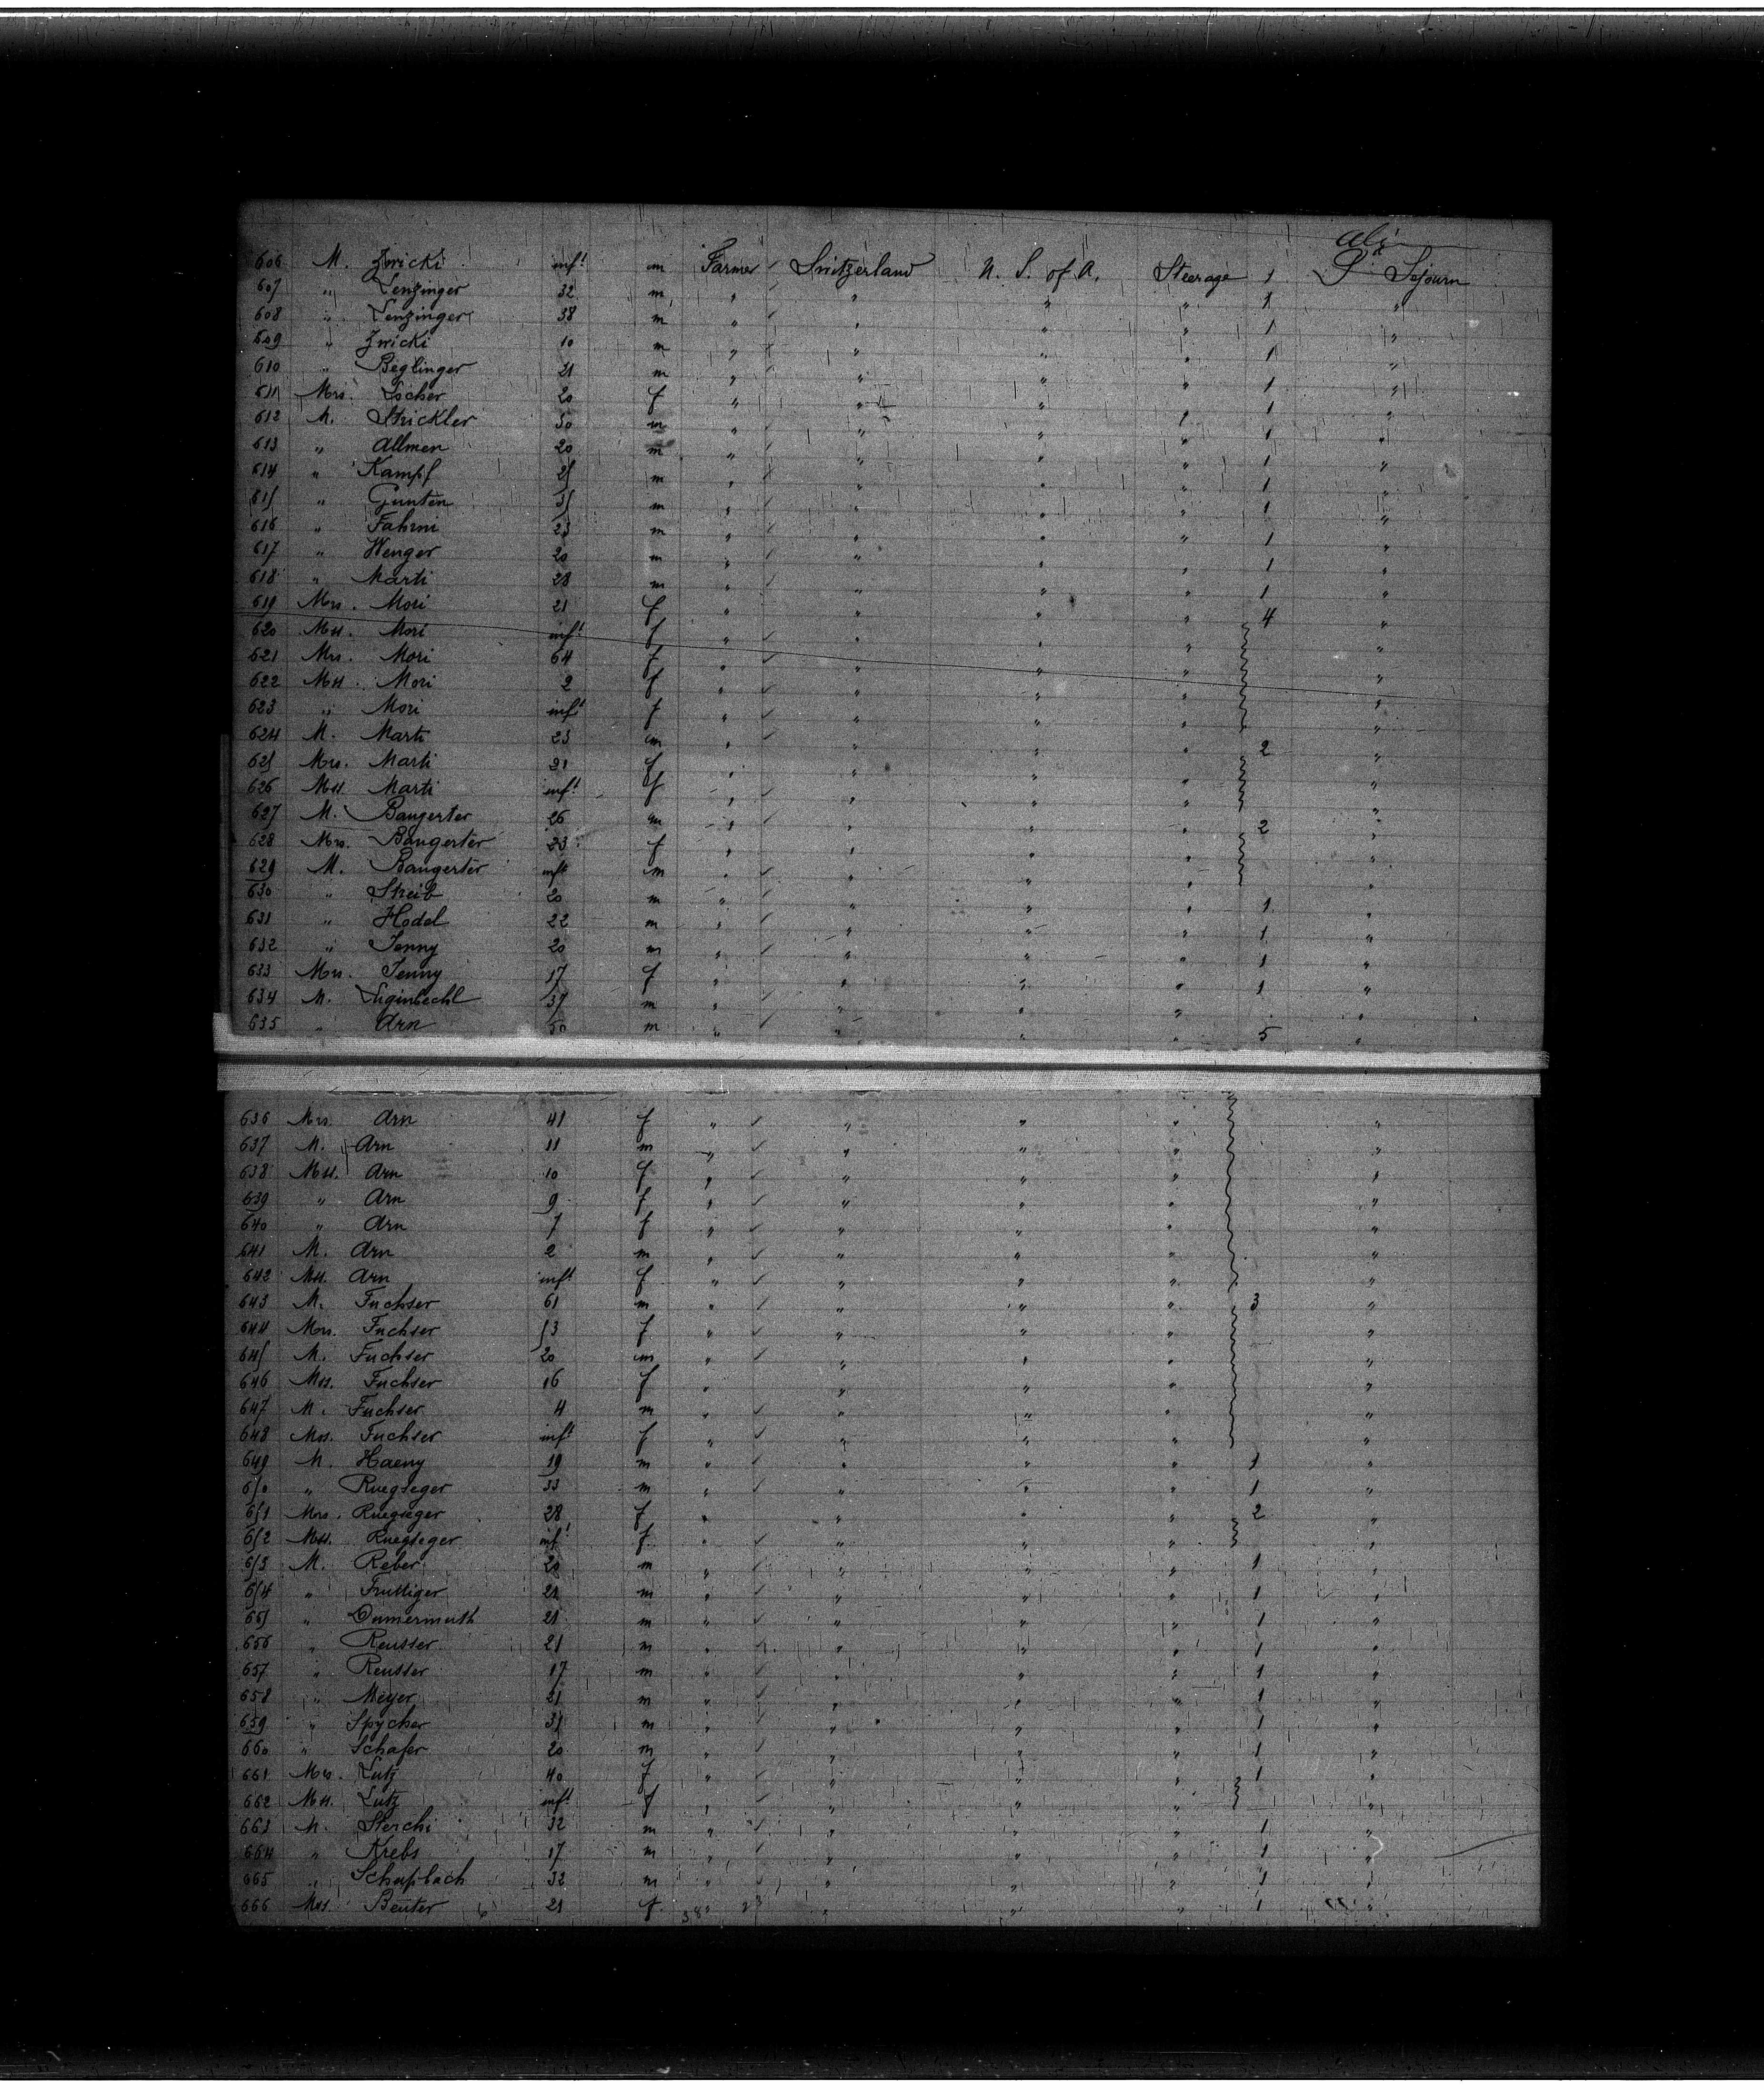 als
606 M. Zwicki inft m Farmer Switzerland U. S. of A. Steerage 1 Sojourn
607 " Lenzinger 32 m " " " " 1 "
608 " Lenzinger 38 m " " " " 1 "
609 " Zwicki 10 m " " " " 1 "
610 " Beglinger 21 m " " " " 1 "
611 Mrs. Locher 20 f " " " " 1 "
612 M. Strickler 50 m " " " " 1 "
613 " Allmen 20 m " " " " 1 "
614 " Kampf 25 m " " " " 1 "
615 " Gunten 35 m " " " " 1 "
616 " Fahrni 23 m " " " " 1 "
617 " Wenger 20 m " " " " 1 "
618 " Marti 28 m " " " " 1 "
619 Mrs. Mori 21 f " " " " 4 "
620 Mss. Mori inft f " " " " "
621 Mrs. Mori 64 f " " " " "
622 Mss. Mori 2 f " " " " "
623 " Mori inft f " " " " "
624 M. Marti 23 m " " " " 2 "
625 Mrs. Marti 21 f " " " " "
626 Mss. Marti inft f " " " " "
627 M. Bangerter 26 m " " " " 2 "
628 Mrs. Bangerter 23 f " " " " "
629 M. Bangerter inft m " " " " "
630 " Streib 20 m " " " " 1 "
631 " Hodel 22 m " " " " 1 "
632 " Jenny 20 m " " " " 1 "
633 Mrs. Jenny 17 f " " " " 1 "
634 M. Liginbechl 37 m " " " " "
635 " Arn 50 m " " " " 5 "
636 Mrs. Arn 41 f " " " " "
637 M. Arn 11 m " " " " "
638 Mss. Arn 10 f " " " " "
639 " Arn 9 f " " " " "
640 " Arn 7 f " " " " "
641 M. Arn 2 m " " " " "
642 Mss. Arn inft f " " " " "
643 M. Fuchser 61 m " " " " 3 "
644 Mrs. Fuchser 53 f " " " " "
645 M. Fuchser 20 m " " " " "
646 Mss. Fuchser 16 f " " " " "
647 M. Fuchser 4 m " " " " "
648 Mss. Fuchser inft f " " " " "
649 M. Haeny 19 m " " " " 1 "
650 " Ruegseger 33 m " " " " 1 "
651 Mrs. Ruegseger 28 f " " " " 2 "
652 Mss. Ruegseger inft f " " " " "
653 M. Reber 20 m " " " " 1 "
654 " Fruttiger 21 m " " " " 1 "
655 " Dumermuth 21 m " " " " 1 "
656 " Reusser 21 m " " " " 1 "
657 " Reusser 17 m " " " " 1 "
658 " Meyer 21 m " " " " 1 "
659 " Spycher 31 m " " " " 1 "
660 " Schafer 20 m " " " " 1 "
661 Mrs. Lutz 40 f " " " " 1 "
662 Mss. Lutz inft f " " " " "
663 M. Sterchi 32 m " " " " 1 "
664 " Krebs 17 m " " " " 1 "
665 " Schupbach 32 m " " " " 1 "
666 Mss. Beuter 21 f " " " " 1 "